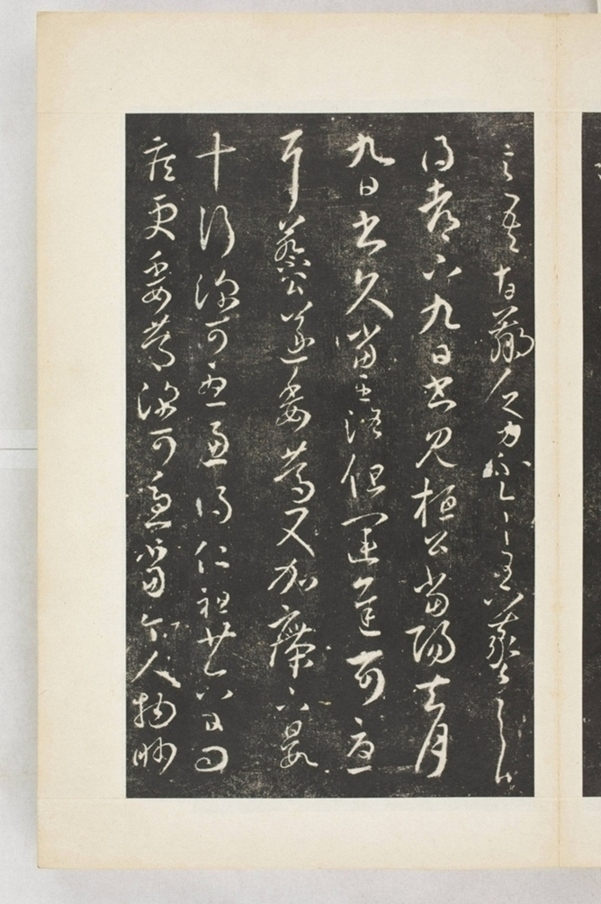 力不一一王羲之
得都下九日書見桓公當陽去月
九日書久當至洛但運遲可憂
耳蔡公遂委篤又加㿃下日數
十行深可憂慮得仁祖廿六日問
疾更委篤深可憂當今人物眇